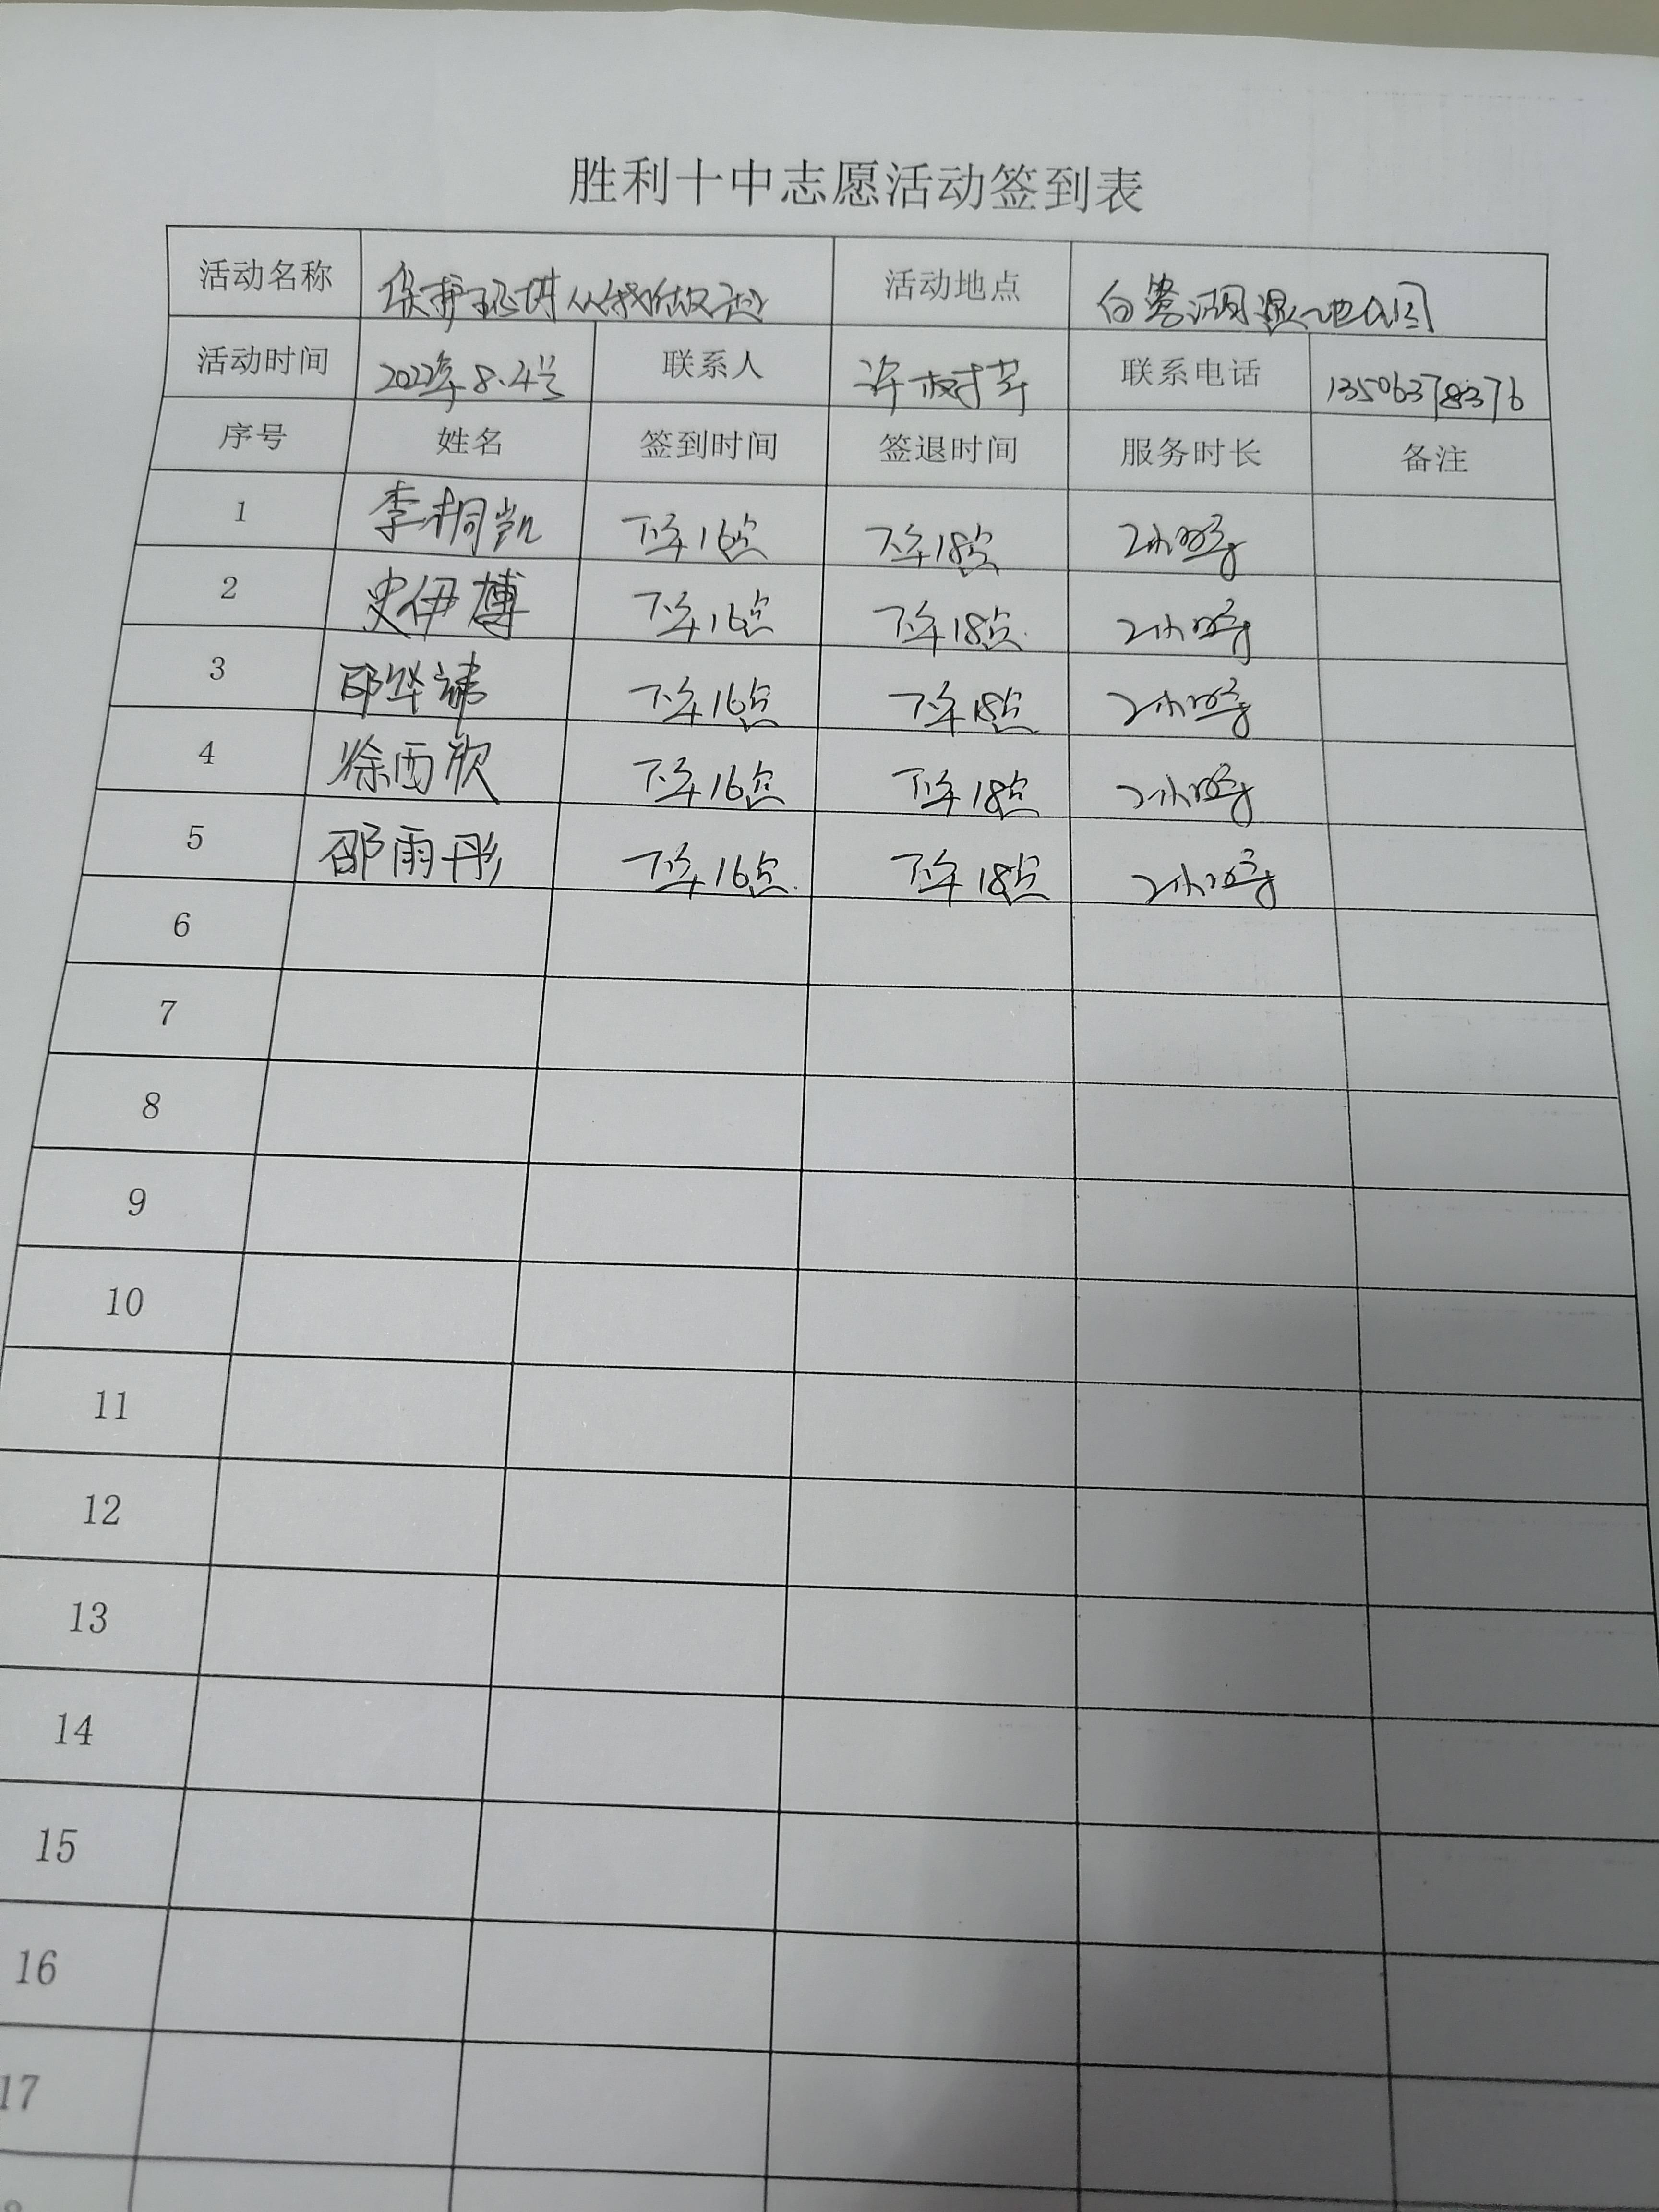 胜利十中志愿活动签到表
活动名称 保护环境从我做起 活动地点 白鹭湖湿地公园
活动时间 2022年8.4号 联系人 许树芹 联系电话 13506378376
序号 姓名 签到时间 签退时间 服务时长 备注
1 李桐凯 下午16点 下午18点 2小时
2 史伊博 下午16点 下午18点 2小时
3 下午16点 下午18点 2小时
4 徐西欣 下午16点 下午18点 2小时
5 邵雨彤 下午16点 下午18点 2小时
6
7
8
9
10
11
12
13
14
15
16
17